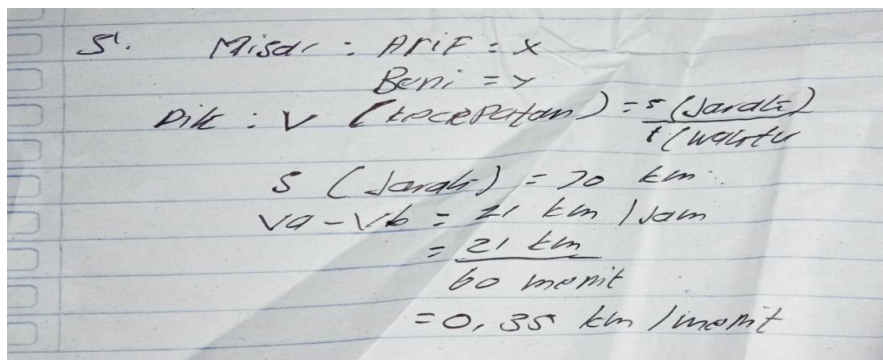 5. Misal : Arif = x
Beni = y
Dik : V (kecepatan) = s (Jarak)
t (waktu
S (Jarak) = 70 km
Va - Vb = 21 km / Jam
= 21 km
60 menit
= 0,35 km / menit